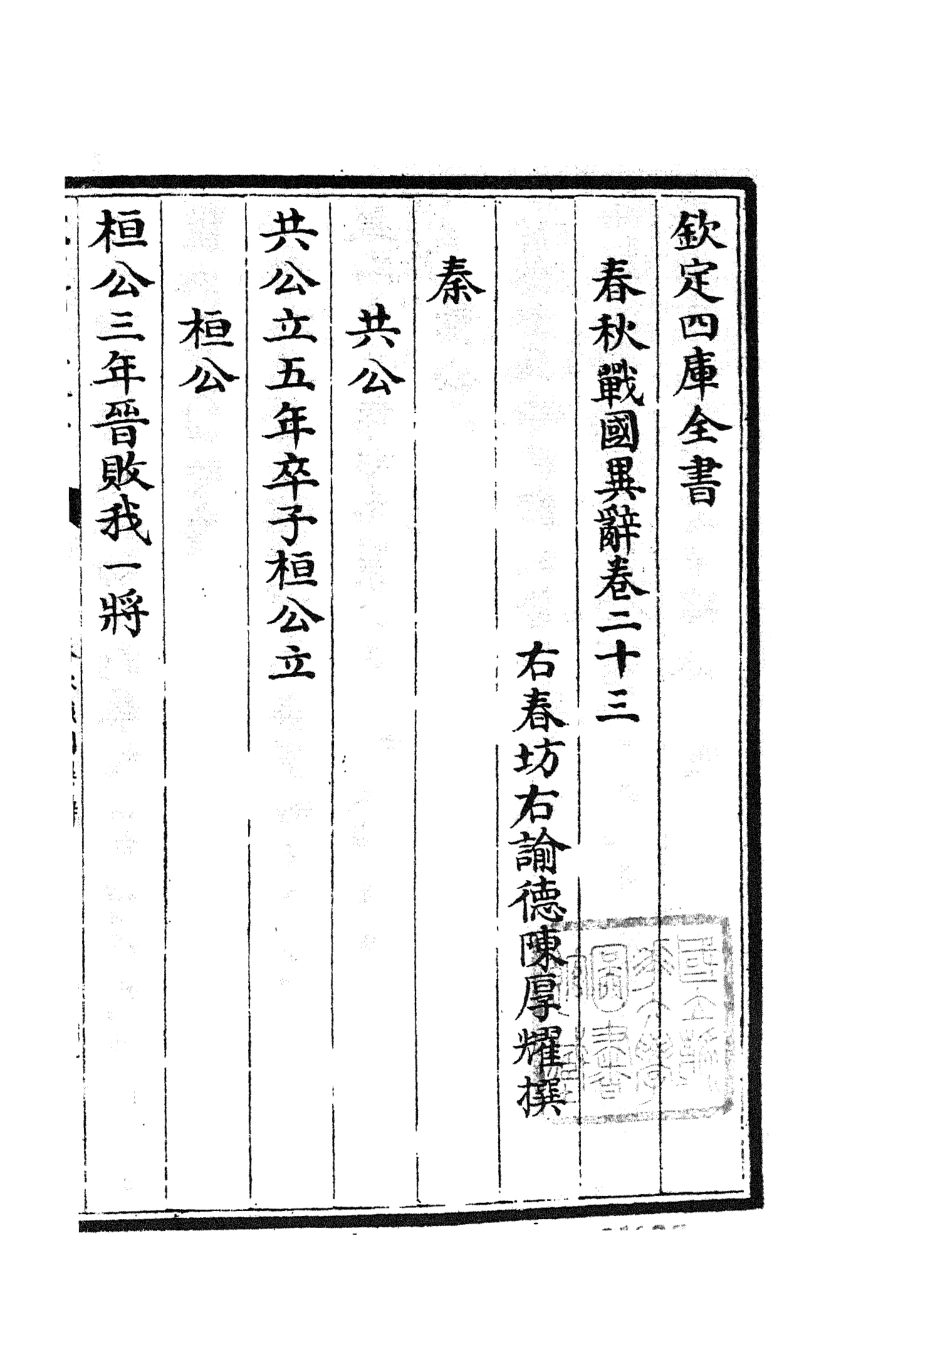 欽定四庫全書
春秋戰國異辭卷二十三
右春坊右諭德陳厚耀撰
秦
共公
共公立五年卒子桓公立
桓公
桓公三年晉敗我一將